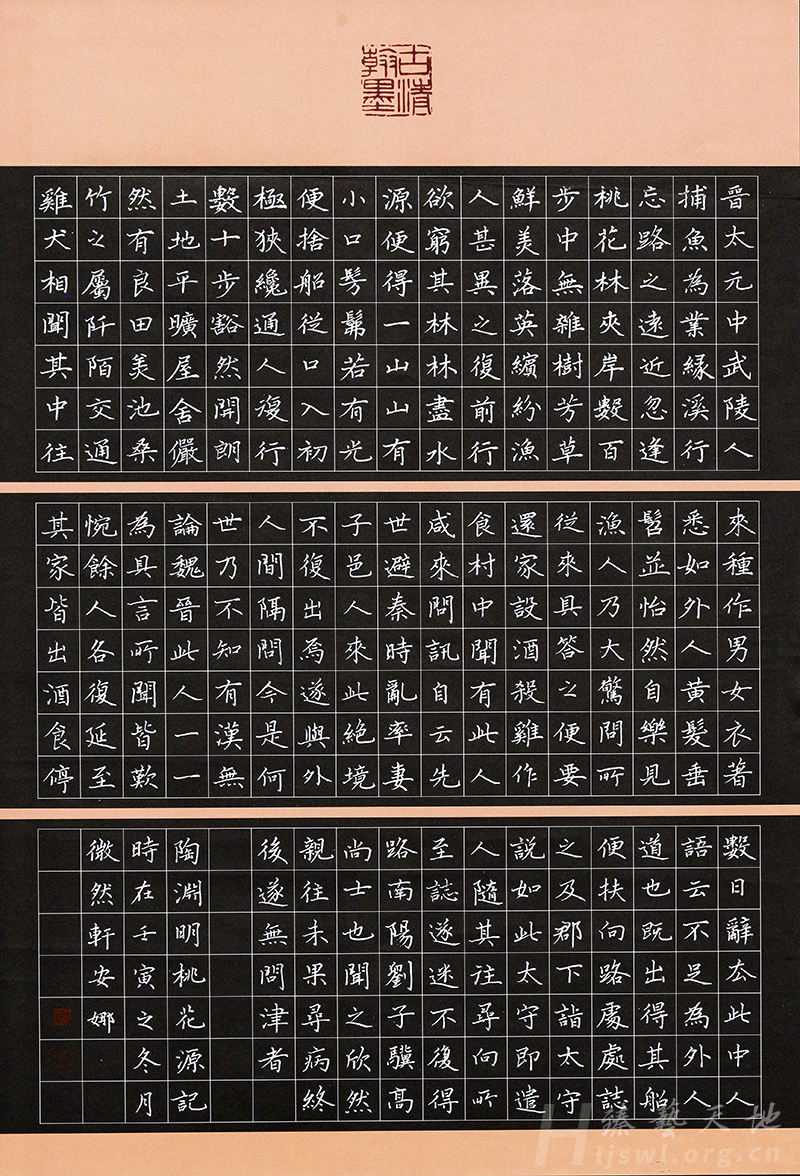 翰墨
晉太元中武陵人
捕魚為業緣溪行
忘路之遠近忽逢
桃花林夾岸數百
步中無雜樹芳草
鮮美落英繽紛漁
人甚異之復前行
欲窮其林林盡水
源便得一山山有
小口髣髴若有光
便捨船從口入初
極狹纔通人復行
數十步豁然開朗
土地平曠屋舍儼
然有良田美池桑
竹之屬阡陌交通
雞犬相聞其中往
來種作男女衣著
悉如外人黃髮垂
髫並怡然自樂見
漁人乃大驚問所
從來具答之便要
還家設酒殺雞作
食村中聞有此人
咸來問訊自云先
世避秦時亂率妻
子邑人來此絕境
不復出為遂與外
人間隔問今是何
世乃不知有漢無
論魏晉此人一一
為具言所聞皆歎
惋餘人各復延至
其家皆出酒食停
數日辭去此中人
語云不足為外人
道也既出得其船
便扶向路處處誌
之及郡下詣太守
說如此太守即遣
人隨其往尋向所
至誌遂迷不復得
路南陽劉子驥高
尚士也聞之欣然
親往未果尋病終
後遂無問津者
陶淵明桃花源記
時在壬寅之冬月
微然軒安娜
臻藝天地
tjswl.org.cn